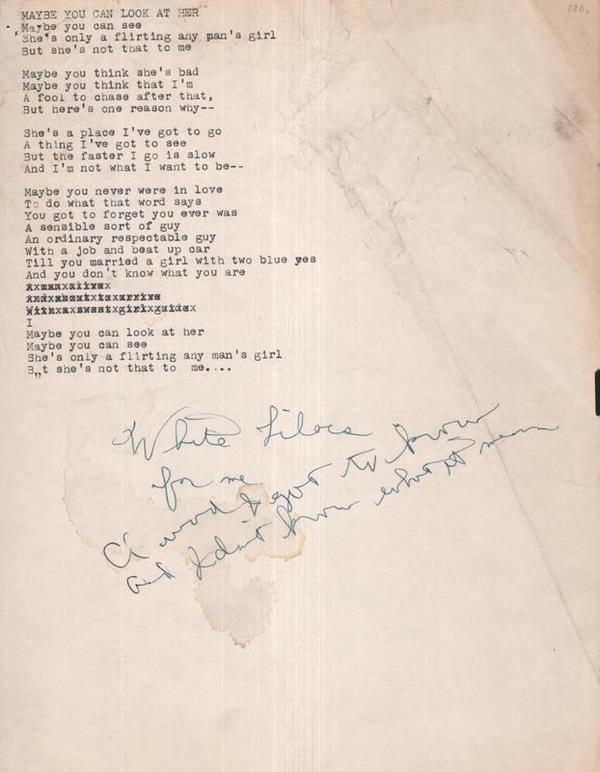 180.
MAYBE YOU CAN LOOK AT HER
Maybe you can see
She's only a flirting any man's girl
But she's not that to me
Maybe you think she's bad
Maybe you think that I'm
A fool to chase after that,
But here's one reason why--
She's a place I've got to go
A thing I've got to see
But the faster I go is slow
And I'm not what I want to be--
Maybe you never were in love
To do what that word says
You got to forget you ever was
A sensible sort of guy
An ordinary respectable guy
With a job and beat up car
Till you married a girl with two blue yes
And you don't know what you are
I
Maybe you can look at her
Maybe you can see
She's only a flirting any man's girl
B,,t she's not that to me....
White Lilacs
for me
A word I got to know
and I don't know what it means